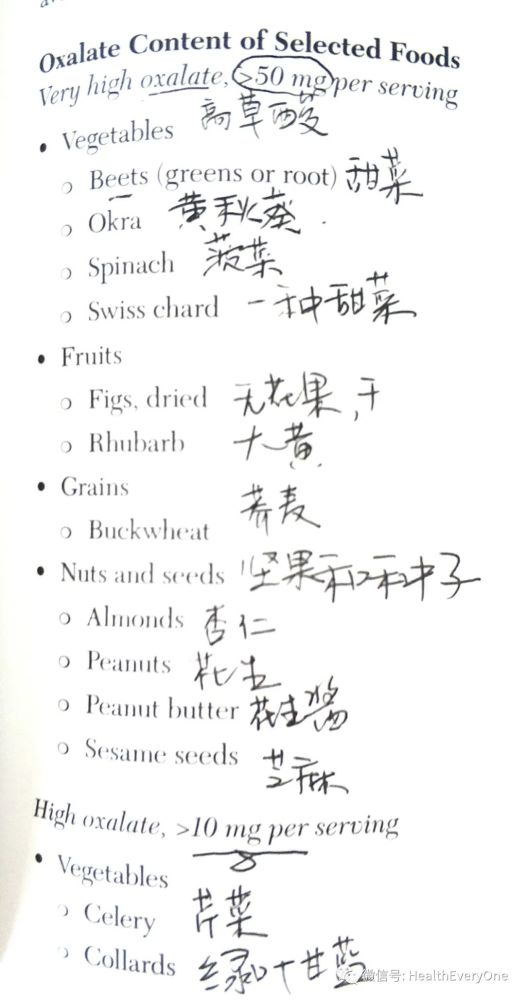 Oxalate Content of Selected Foods
Very high oxalate, >50 mg per serving
高草酸
• Vegetables
○ Beets (greens or root) 甜菜
○ Okra 黄秋葵
○ Spinach 菠菜
○ Swiss chard 一种甜菜
• Fruits
○ Figs, dried 无花果,干
○ Rhubarb 大黄
• Grains
○ Buckwheat 荞麦
• Nuts and seeds 坚果和种子
○ Almonds 杏仁
○ Peanuts 花生
○ Peanut butter 花生酱
○ Sesame seeds 芝麻
High oxalate, >10 mg per serving
• Vegetables
○ Celery 芹菜
○ Collards 绿叶甘蓝
微信号: HealthEveryOne